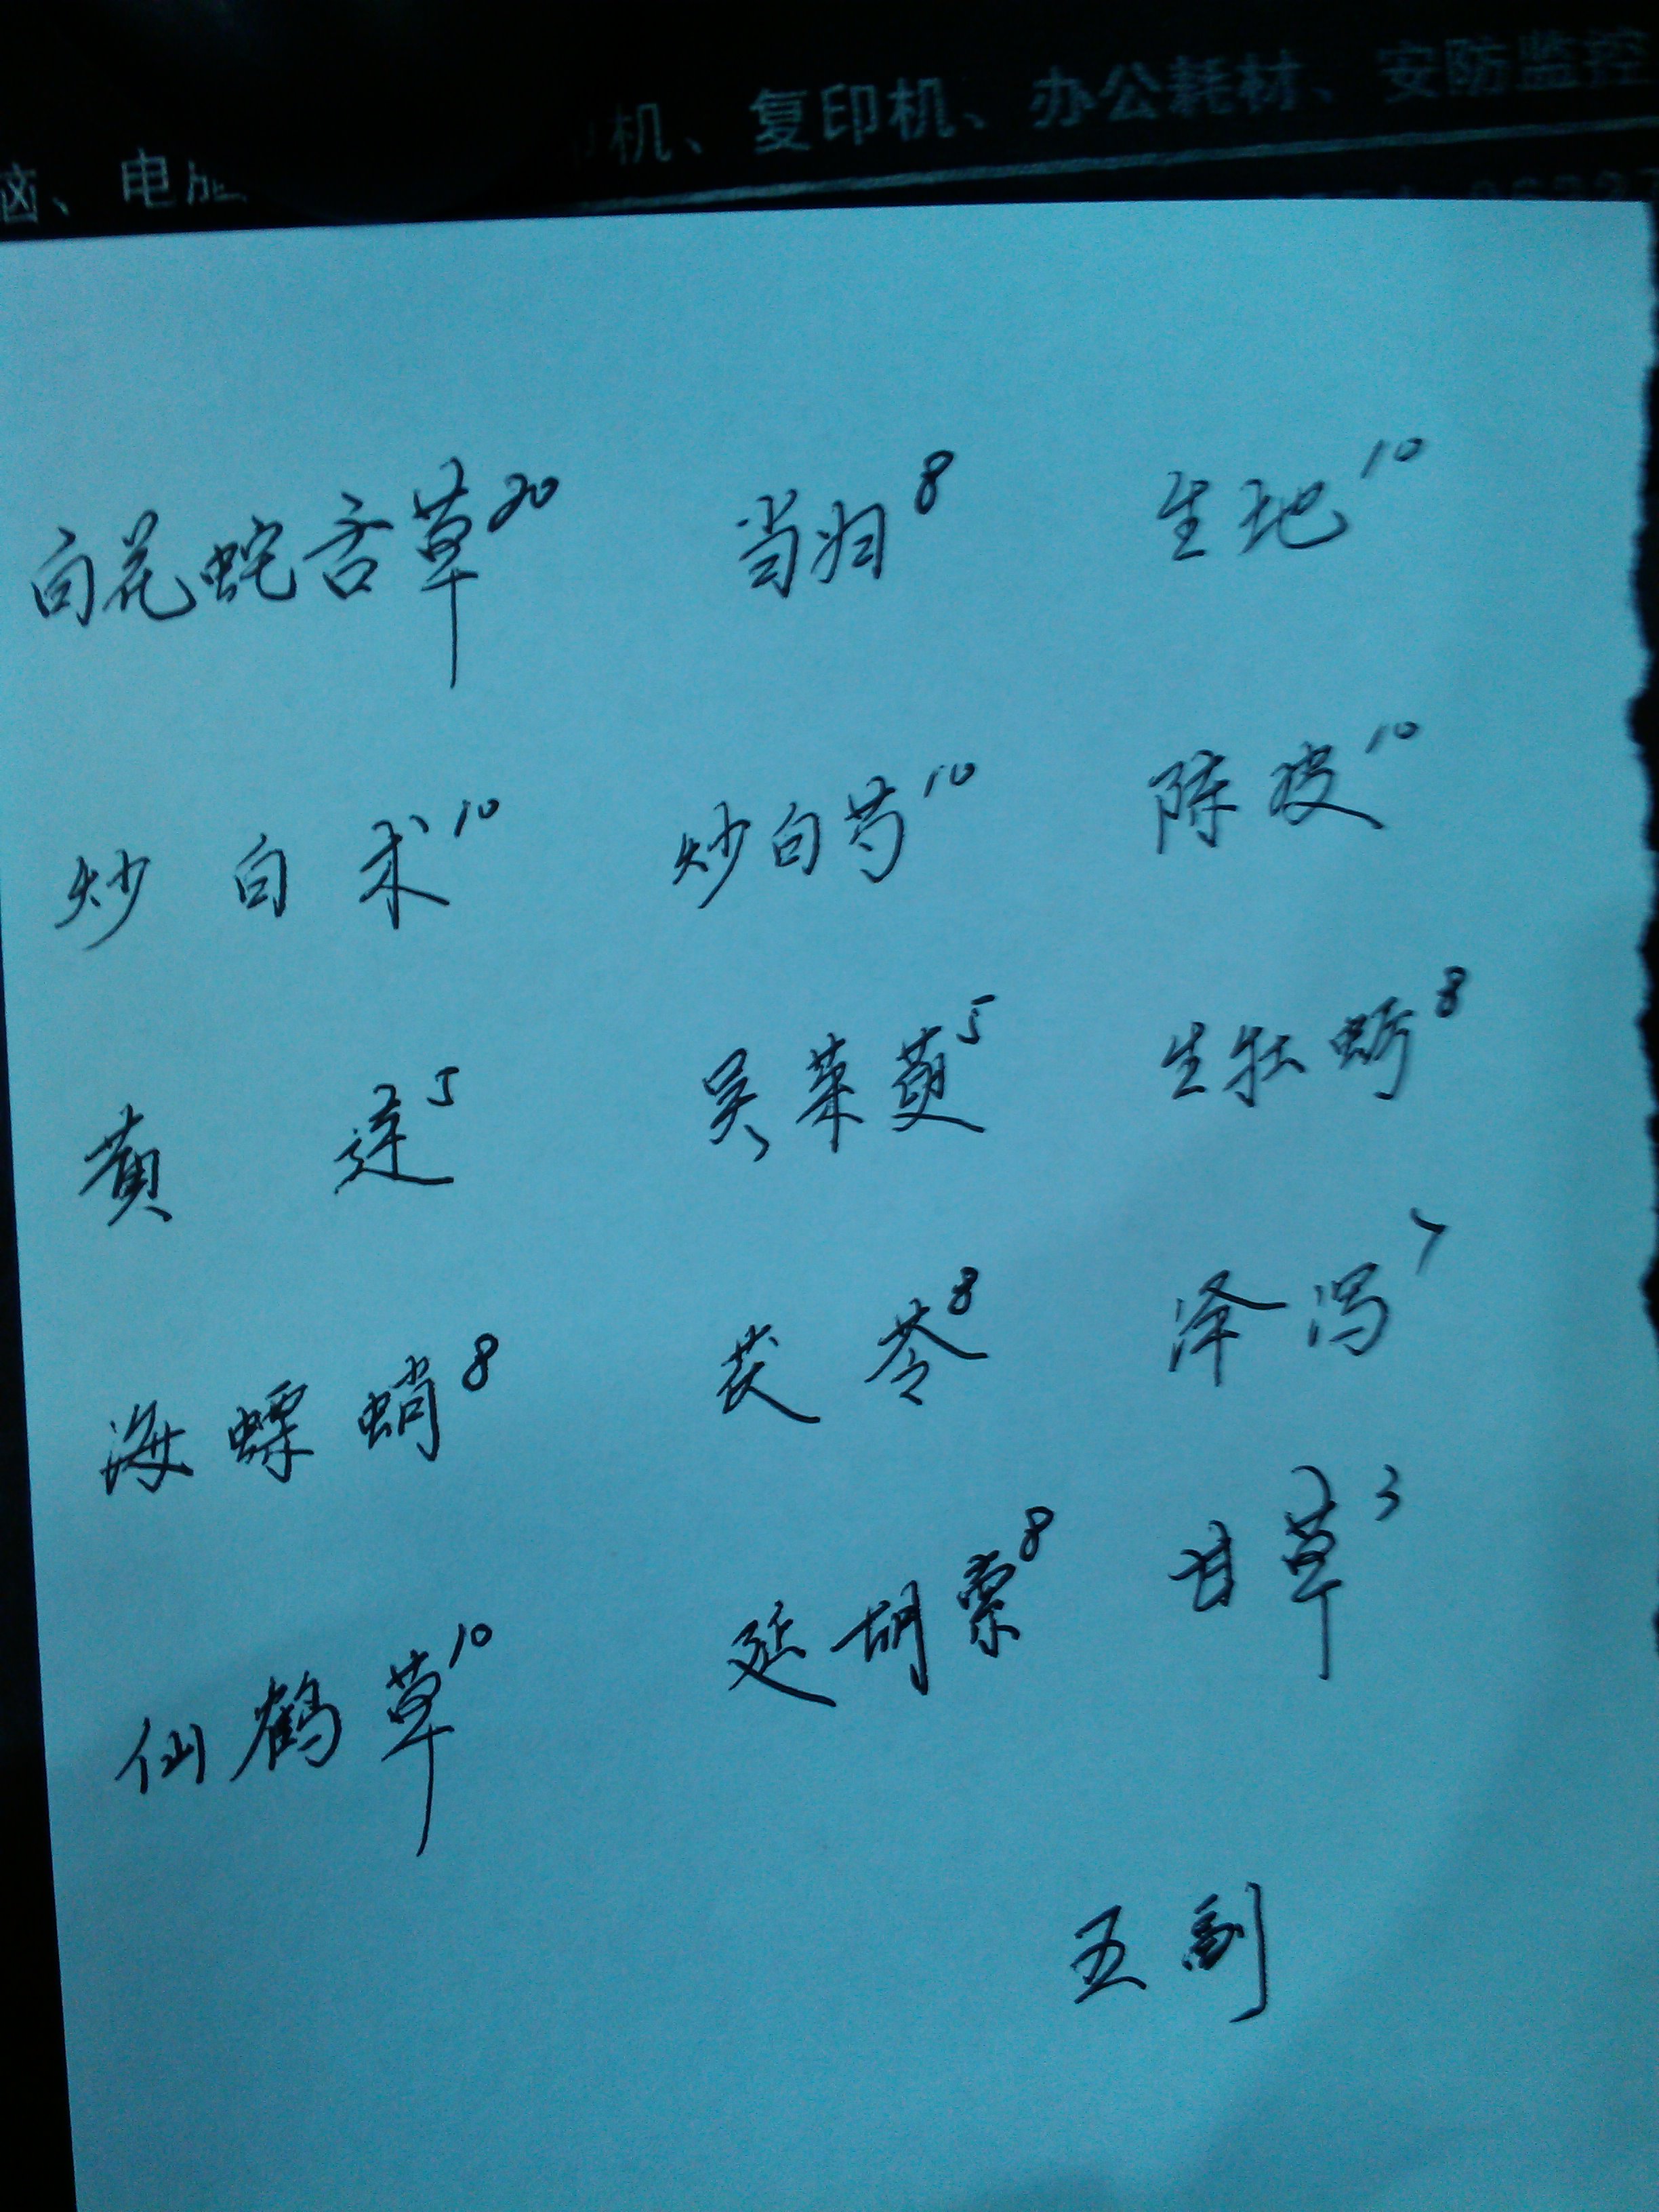 脑、电脑 机、复印机、办公耗材、安防监控
白花蛇舌草20 当归8 生地10
炒白术10 炒白芍10 陈皮10
黄连5 吴茱萸5 生牡蛎8
海螵蛸8 茯苓8 泽泻7
仙鹤草10 延胡索8 甘草3
五副